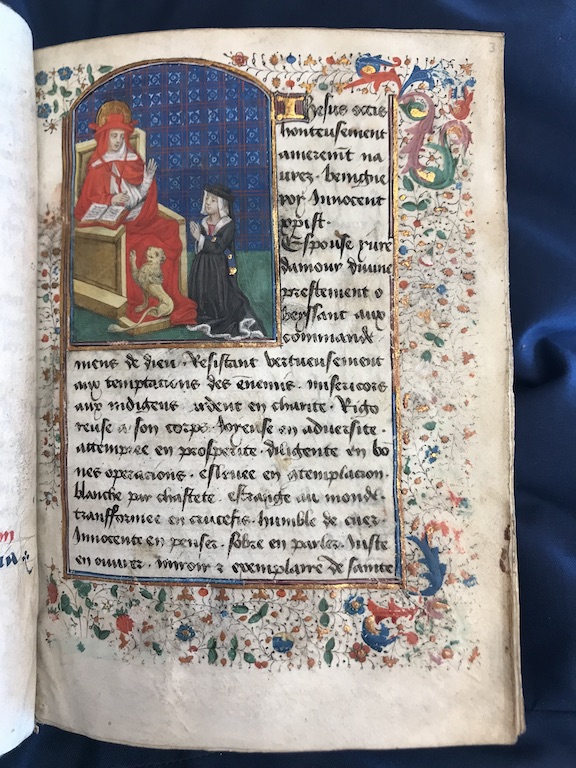 3
Ihesus occis
honteusement
amerem̄t na
urez. benigne
roy Innocent
xp̄ist.
Espouse iure
damour diuine
prestement o
beyssant aux
commande
mens de dieu. Resistant vertueusement
aux temptacions des enemis. misericors
aux indigens ardent en charite. Rigo
reuse a son corps. Joyeuse en aduersite.
attempree en prosperite. diligente en bō
nes operacions. esleuee en ɔtemplacion
blanche par chastete. estrange au monde.
transformee en crucefis. humble de cuer.
Innocente en penser. sobre en parler. Juste
en ouurer. miroir ⁊ exemplaire de saincte